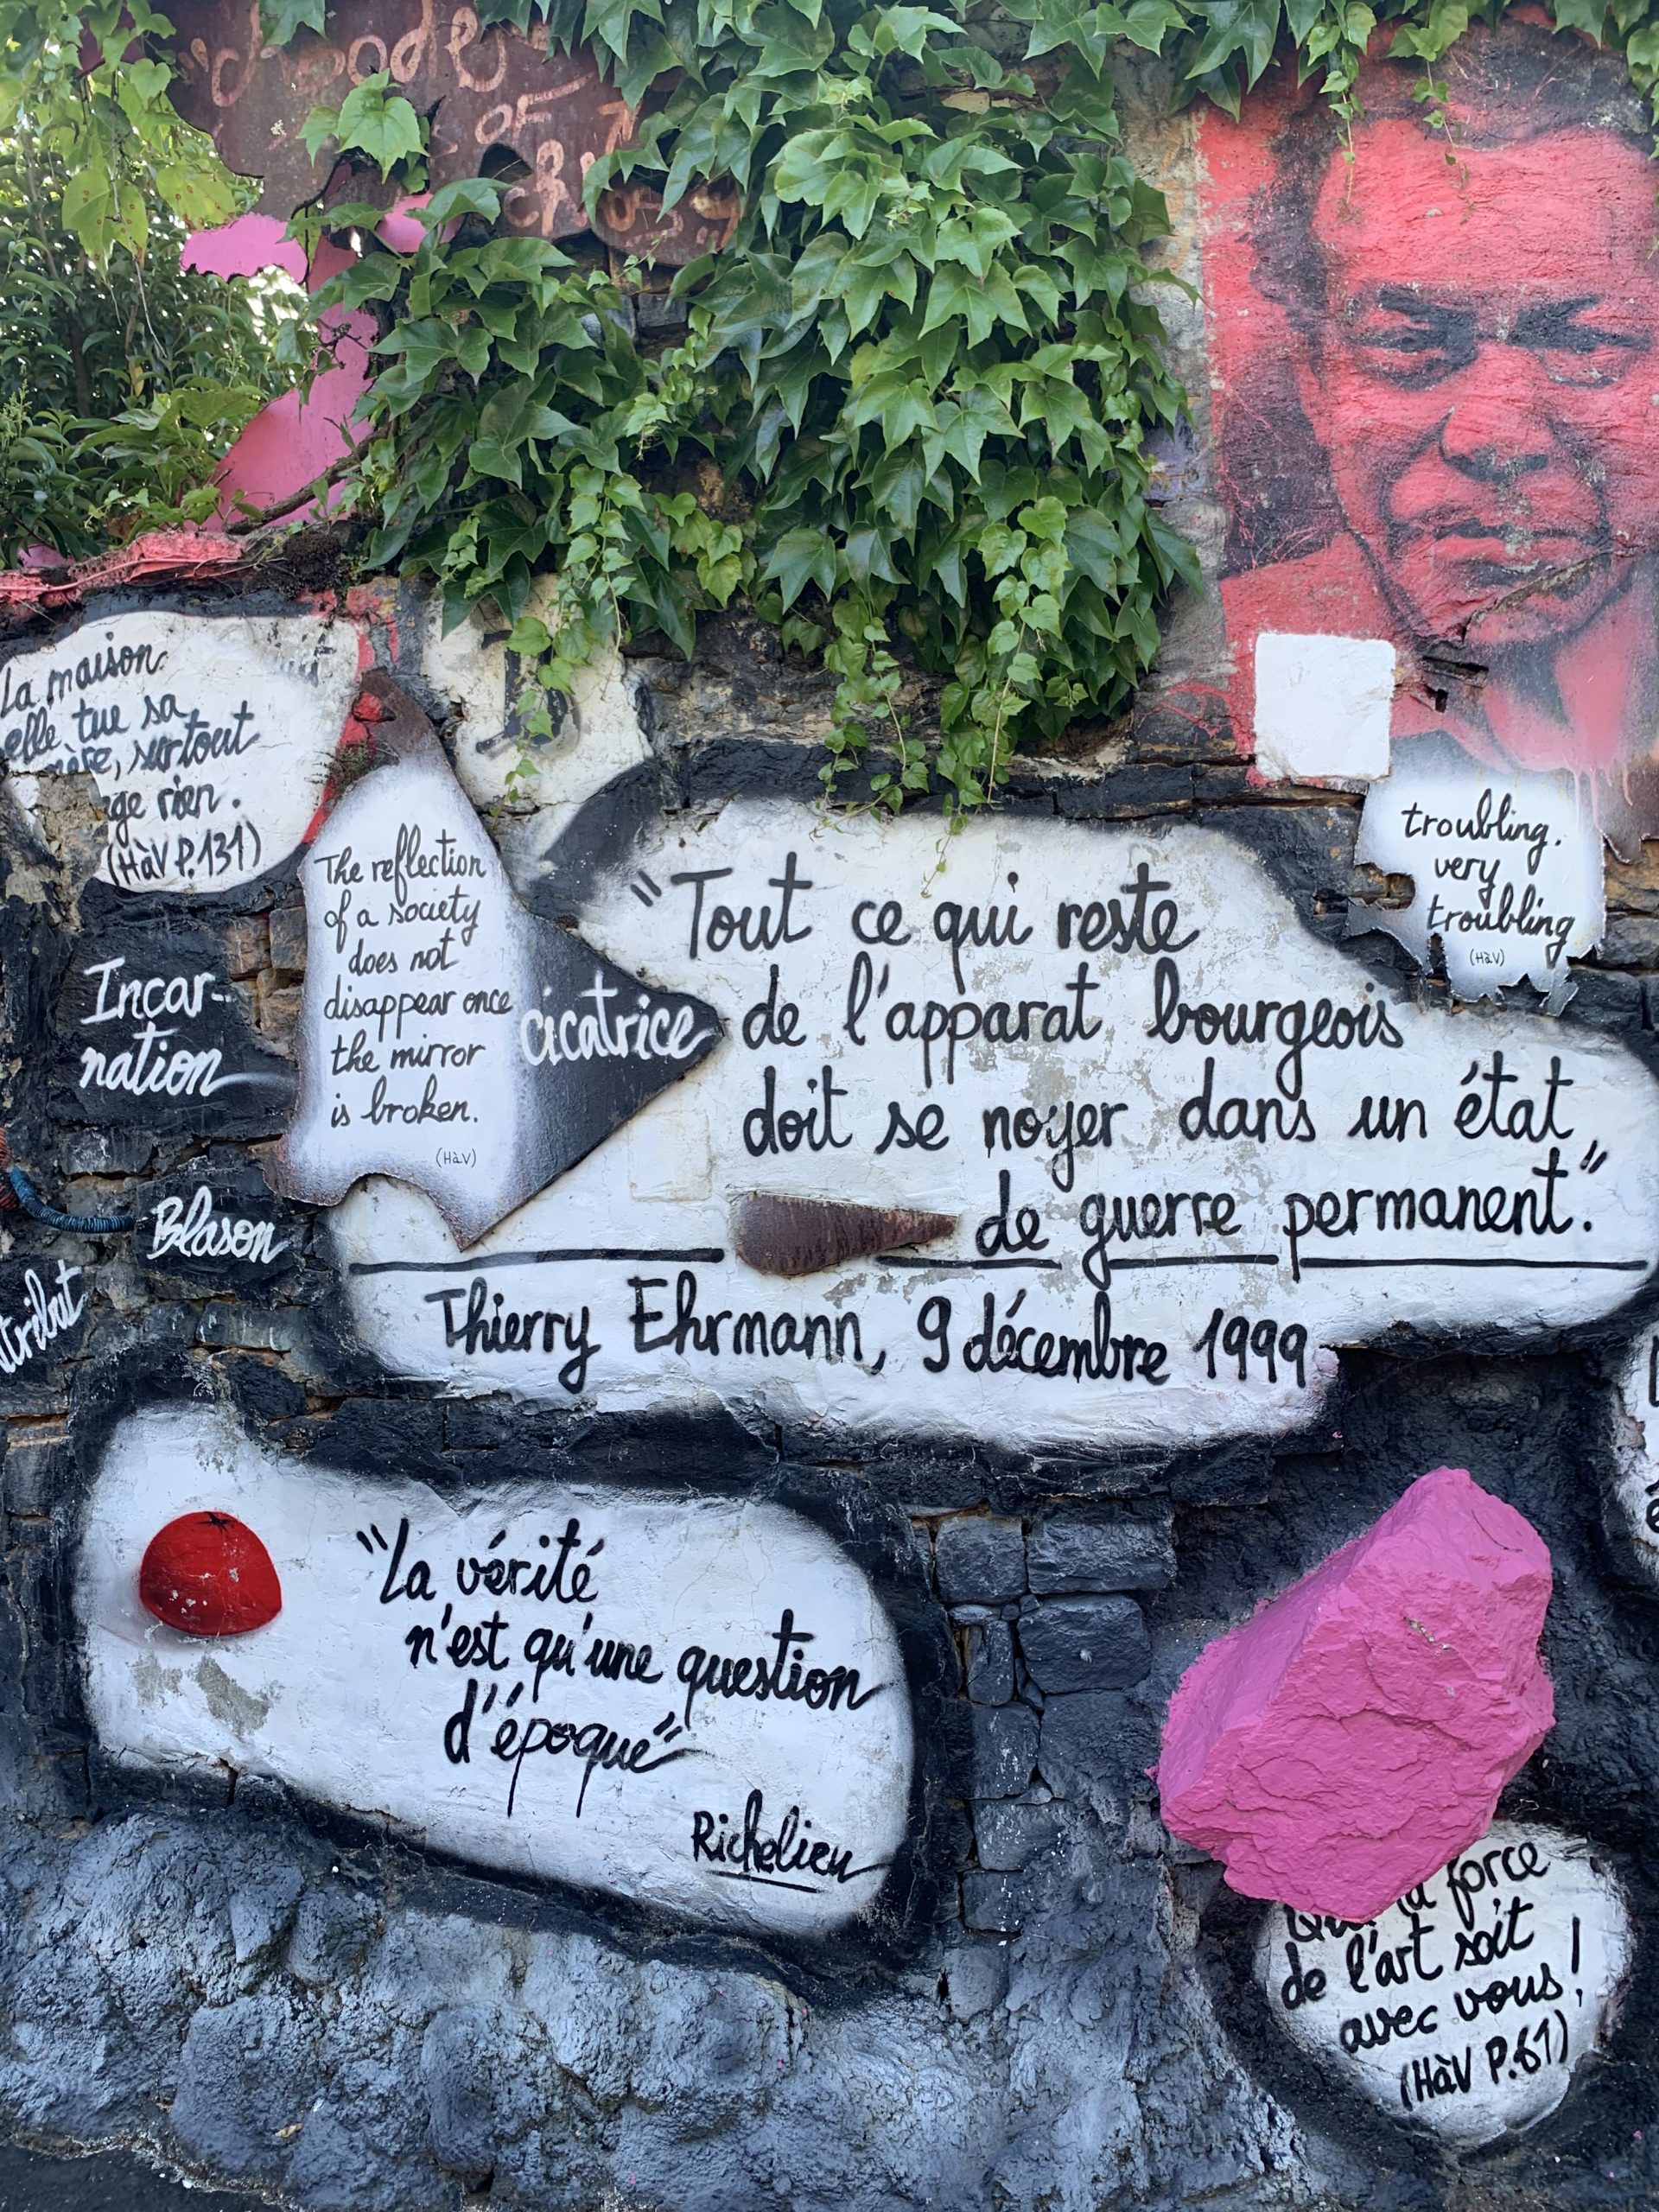 Abode
OF
chaos
La maison
elle tue sa
surtout
rien.
(HàV P.131)
The reflection
of a society
does not
disappear once
the mirror
is broken.
(HàV)
cicatrice
Incar-
nation
Blason
"Tout ce qui reste
de l'apparat bourgeois
doit se noyer dans un état
de guerre permanent."
Thierry Ehrmann, 9 décembre 1999
troubling.
very
troubling
(HàV)
"La vérité
n'est qu'une question
d'époque"
Richelieu
force
de l'art soit
avec vous!
(HàV P.61)